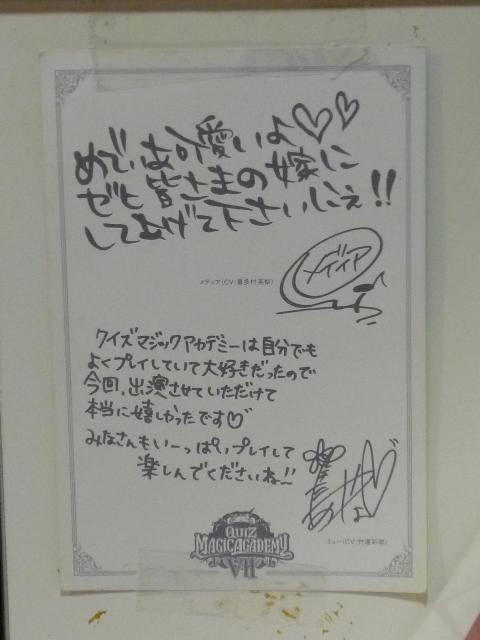 めでぃは可愛いよ♡♡
ゼヒ皆さまの嫁に
してあげて下さいしえ!!
メディア
メディア(CV:喜多村英梨)
クイズマジックアカデミーは自分でも
よくプレイしていて大好きだったので
今回、出演させていただけて
本当に嬉しかったです♡
みなさんもいーっぱいプレイして
楽しんでくださいね!!
ミュー(CV:竹達彩奈)
QUIZ
MAGICACADEMY
VII